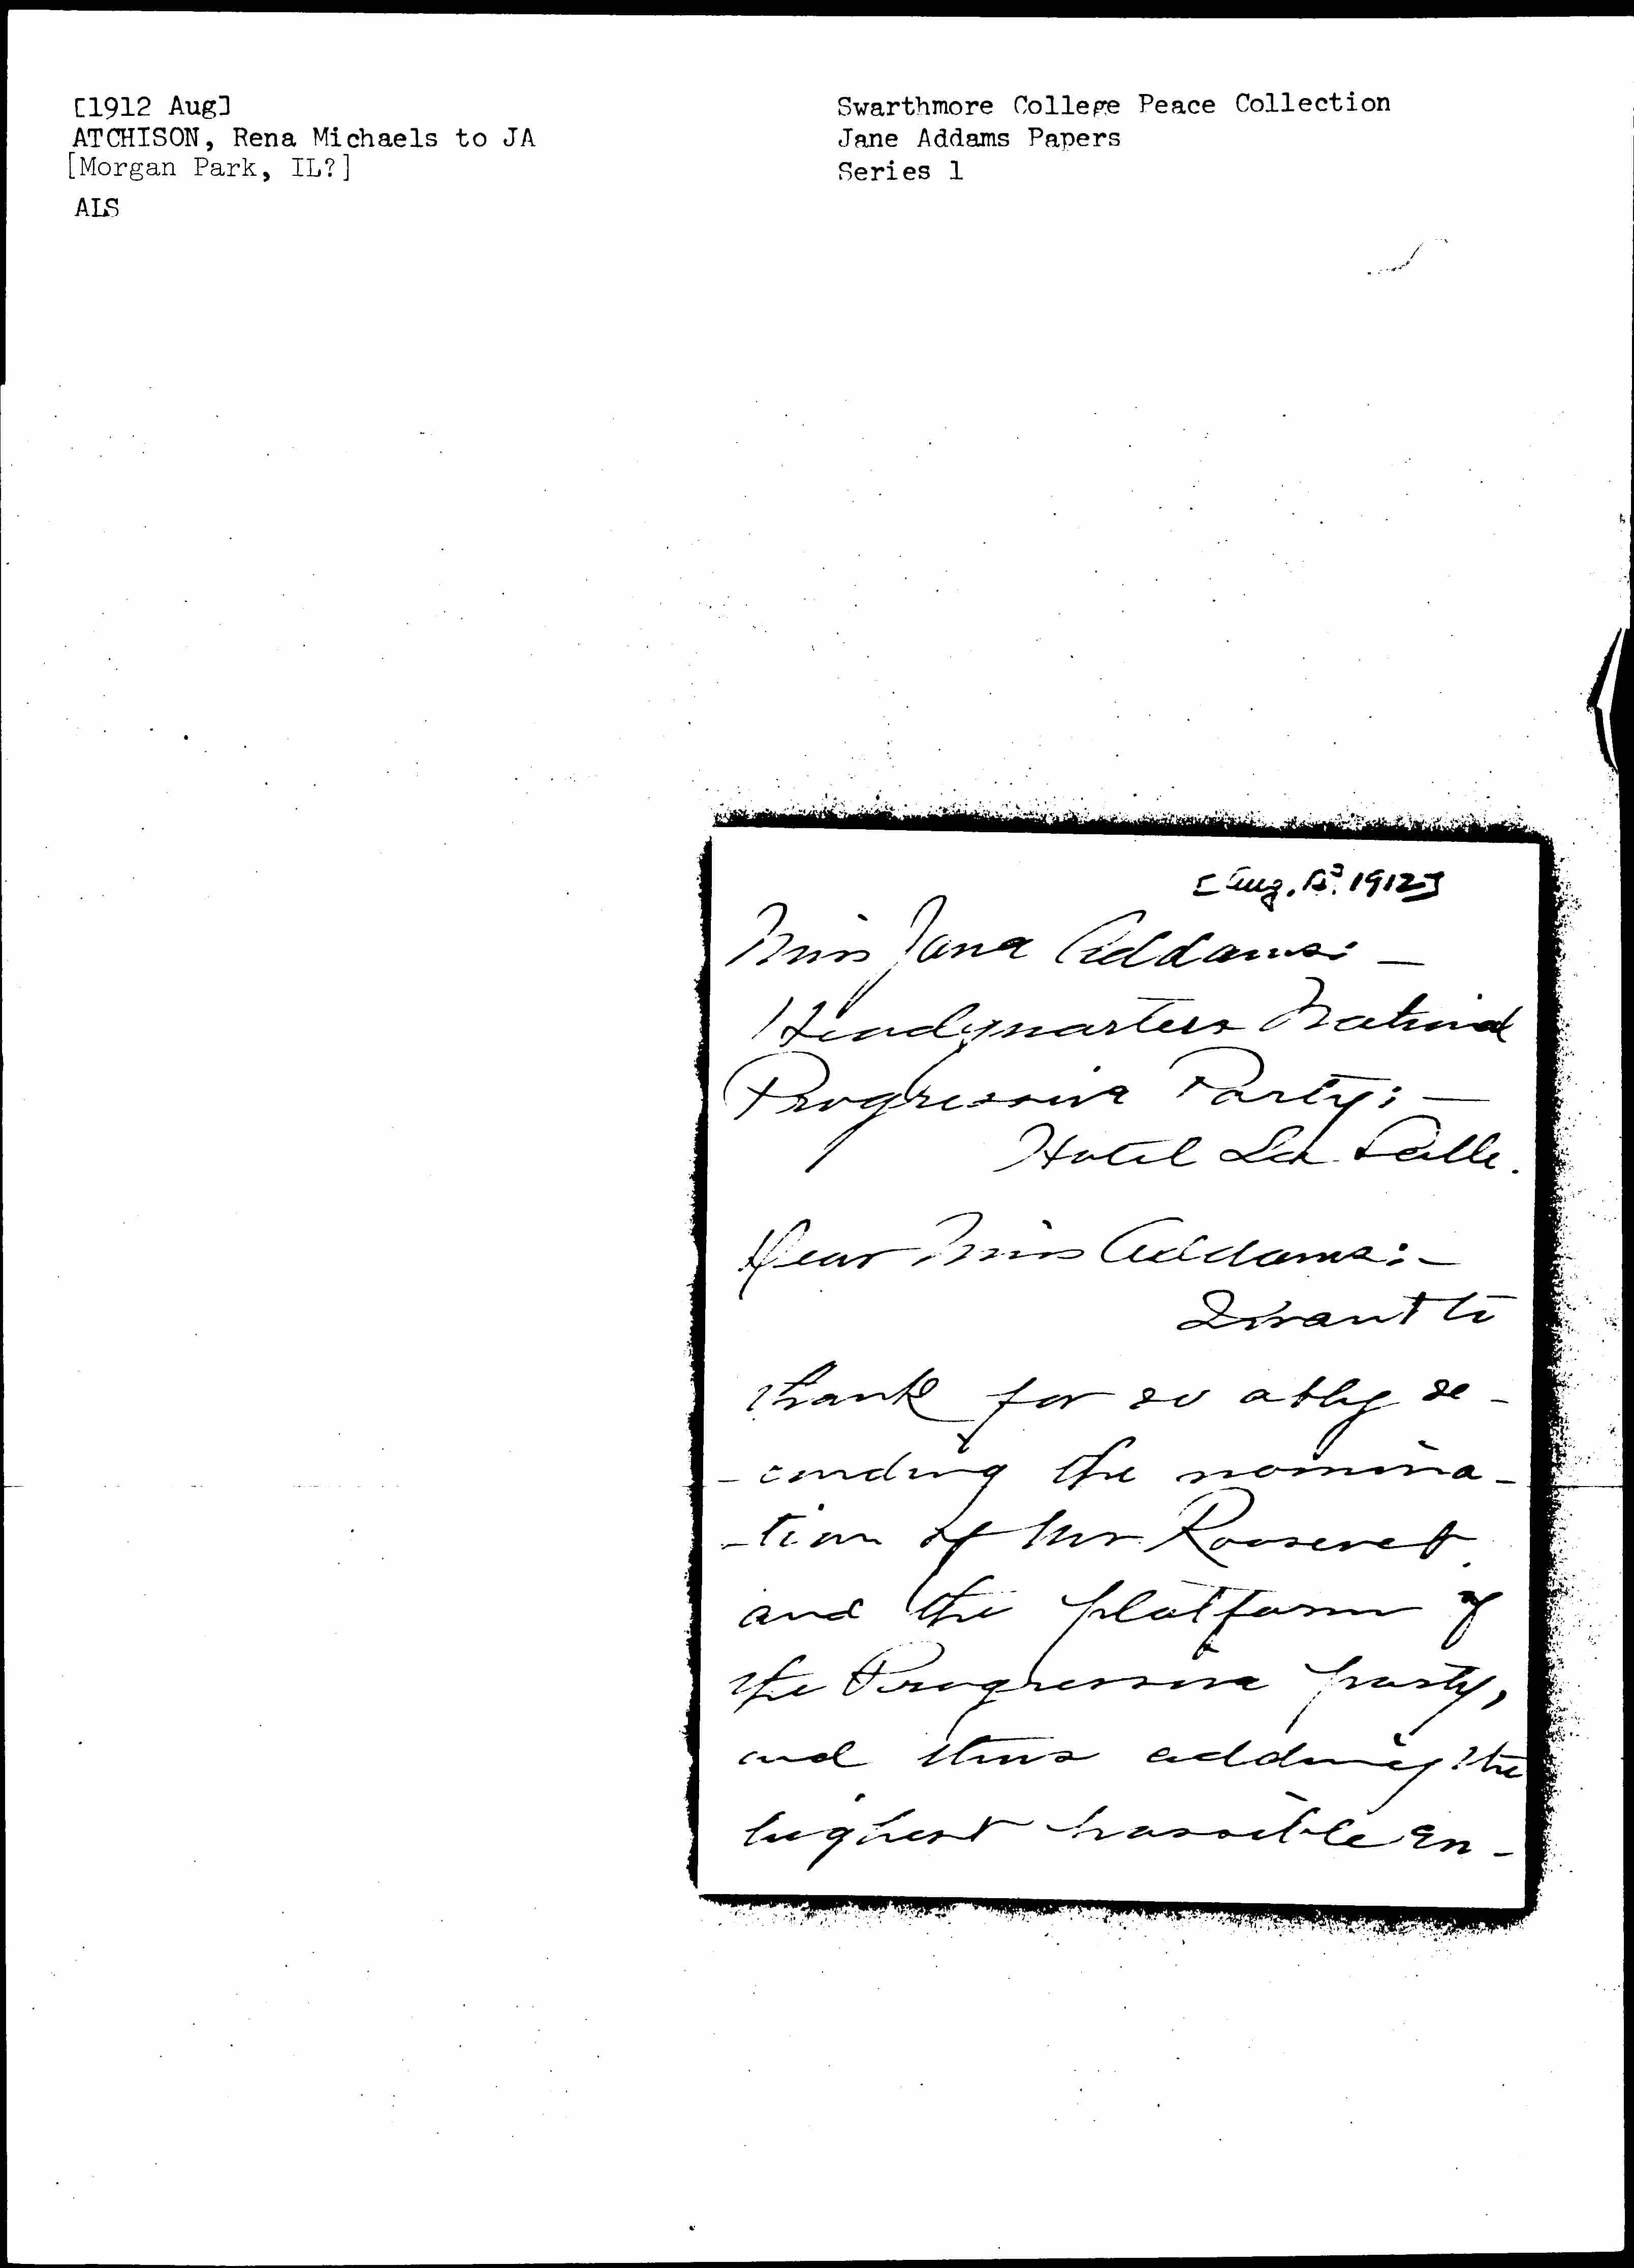 [1912 Aug]
ATCHISON, Rena Michaels to JA
[Morgan Park, IL?]
ALS
Swarthmore College Peace Collection
Jane Addams Papers
Series 1
[Aug. 1912]
Miss Jane Addams: —
Headquarters National
Progressive Party; —
Hotel La Salle.
Dear Miss Addams: —
I want to
thank for so ably se-
-conding the nomina-
-tion of Mr Roosevelt
and the platform of
the Progressive party,
and thus adding the
highest possible en-